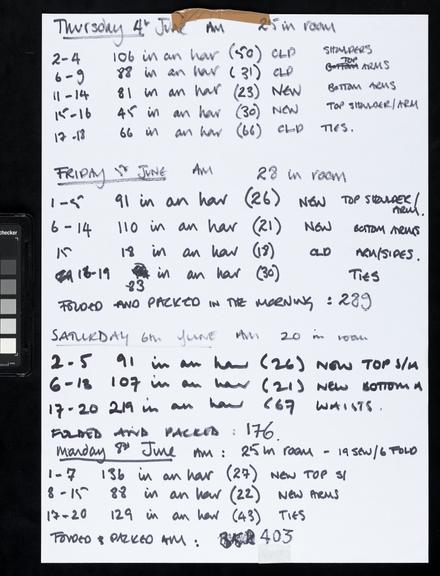 Thursday 4th June AM 25 in room
2-4 106 in an hour (50) OLD SHOULDERS
6-9 88 in an hour (31) OLD TOP ARMS
11-14 81 in an hour (23) NEW BOTTOM ARMS
15-16 45 in an hour (30) NEW TOP SHOULDER/ARM
17-18 66 in an hour (66) OLD TIES.
FRIDAY 5th JUNE AM 28 in room
1-5 91 in an hour (26) NEW TOP SHOULDER/ARM.
6-14 110 in an hour (21) NEW BOTTOM ARMS
15 18 in an hour (18) OLD ARM/SIDES.
18-19 83 in an hour (30) TIES
FOLDED AND PACKED IN THE MORNING : 289
SATURDAY 6th JUNE AM 20 in room
2-5 91 in an hour (26) NEW TOP S/A
6-18 107 in an hour (21) NEW BOTTOM A
17-20 219 in an hour (67 WAISTS.
FOLDED AND PACKED : 176.
Monday 8th June AM : 25 in room - 19 SEW/6 FOLD
1-7 136 in an hour (27) NEW TOP S/
8-15 88 in an hour (22) NEW ARMS
17-20 129 in an hour (43) TIES
FOLDED & PACKED AM : 403
checker